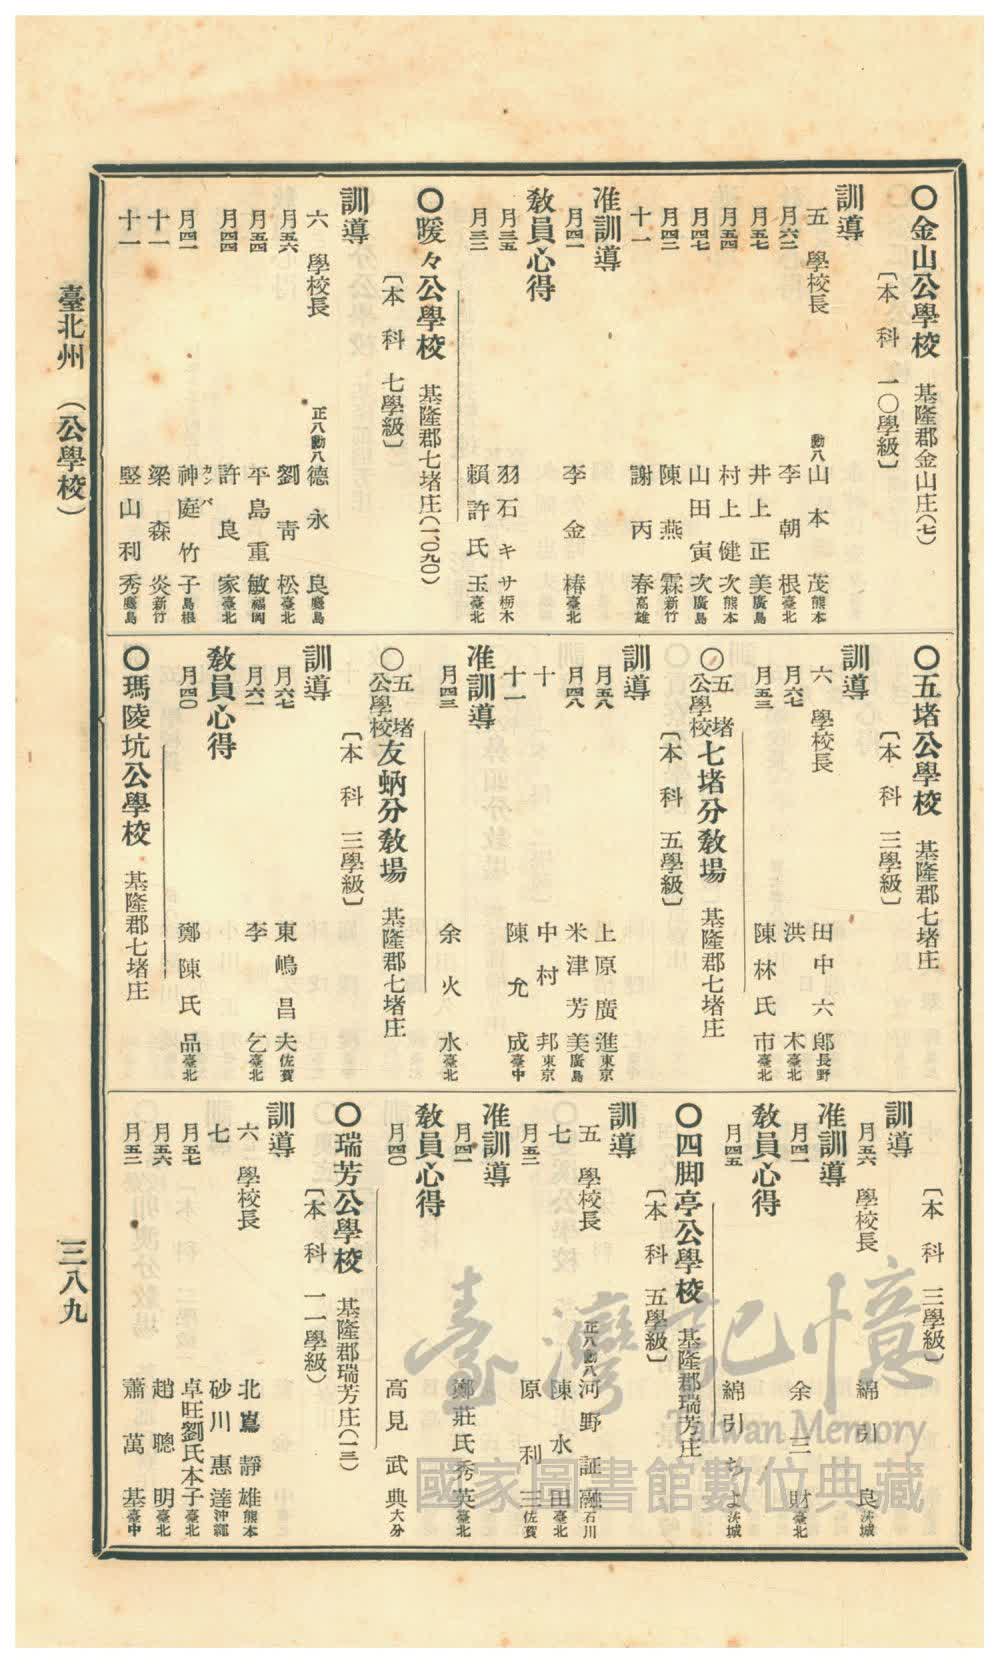 臺北州 （公學校） 三八九
〇金山公學校 基隆郡金山庄(七)
〔本科 一〇學級〕
訓導
五 學校長 勳八 山本茂 熊本
月六二 李朝根 臺北
月五七 井上正美 廣島
月五四 村上健次 熊本
月四七 山田寅次 廣島
月四二 陳燕霖 新竹
十一 謝丙春 高雄
准訓導
月四一 李金椿 臺北
敎員心得
月三五 羽石キサ 栃木
月三二 賴許氏玉 臺北
〇暖々公學校 基隆郡七堵庄(一、〇九〇)
〔本科 七學級〕
訓導
六 學校長 正八勳八 德永良 廣島
月五六 劉靑松 臺北
月五四 平島重敏 福岡
月四四 許良家 臺北
月四一 神庭竹子 島根
カンバ
十一 梁森炎 新竹
十一 堅山利秀 廣島
〇五堵公學校 基隆郡七堵庄
〔本科 三學級〕
訓導
六 學校長 田中六郞 長野
月六七 洪木 臺北
月五三 陳林氏市 臺北
〇五堵公學校七堵分敎場 基隆郡七堵庄
〔本科 五學級〕
訓導
月五八 上原廣進 東京
月四八 米津芳美 廣島
十 中村邦 東京
十一 陳允成 臺中
准訓導
月四三 余火水 臺北
〇五堵公學校友蚋分敎場 基隆郡七堵庄
〔本科 三學級〕
訓導
月六七 東嶋昌夫 佐賀
月六一 李乞 臺北
敎員心得
月四〇 鄭陳氏品 臺北
〇瑪陵坑公學校 基隆郡七堵庄
〔本科 三學級〕
訓導
月五六 學校長 綿引良 茨城
准訓導
月四一 余三財 臺北
敎員心得
月四五 綿引ちよ 茨城
〇四脚亭公學校 基隆郡瑞芳庄
〔本科 五學級〕
訓導
五 學校長 正八勳八 河野証融 石川
七 陳水田 臺北
月五三 原利三 佐賀
准訓導
月四一 鄭莊氏秀英 臺北
敎員心得
月四〇 高見武典 大分
〇瑞芳公學校 基隆郡瑞芳庄(一三)
〔本科 一一學級〕
訓導
六 學校長 北嶌靜雄 熊本
七 砂川惠達 沖繩
月五七 卓旺劉氏本子 臺北
月五六 趙聰明 臺北
月五三 蕭萬基 臺中
臺灣記憶
Taiwan Memory
國家圖書館數位典藏